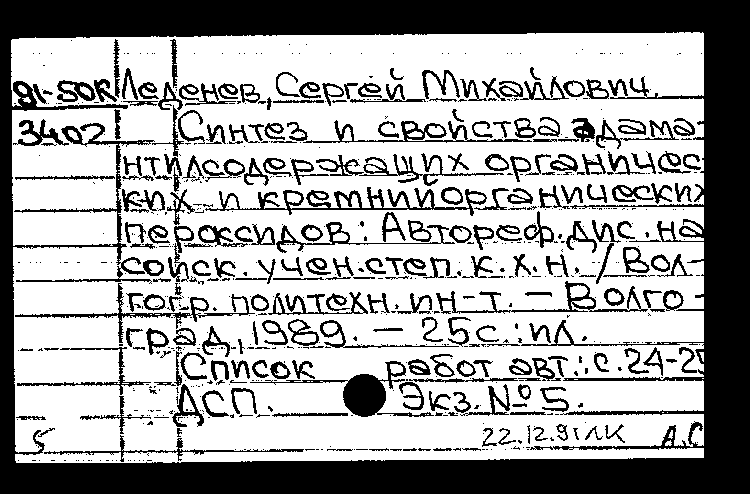 91-50R Леденев, Сергей Михайлович.
3402 Синтез и свойства адама-
нтилсодержащих органичес-
ких и кремнийорганических
пероксидов: Автореф. дис. на
соиск. учен. степ. к. х. н. / Вол-
гогр. политехн. ин-т. — Волго-
град, 1989. — 25с.: ил.
Список работ авт.: с. 24-25
ДСП. Экз. № 5.
5 22.12.91 ЛК А.С